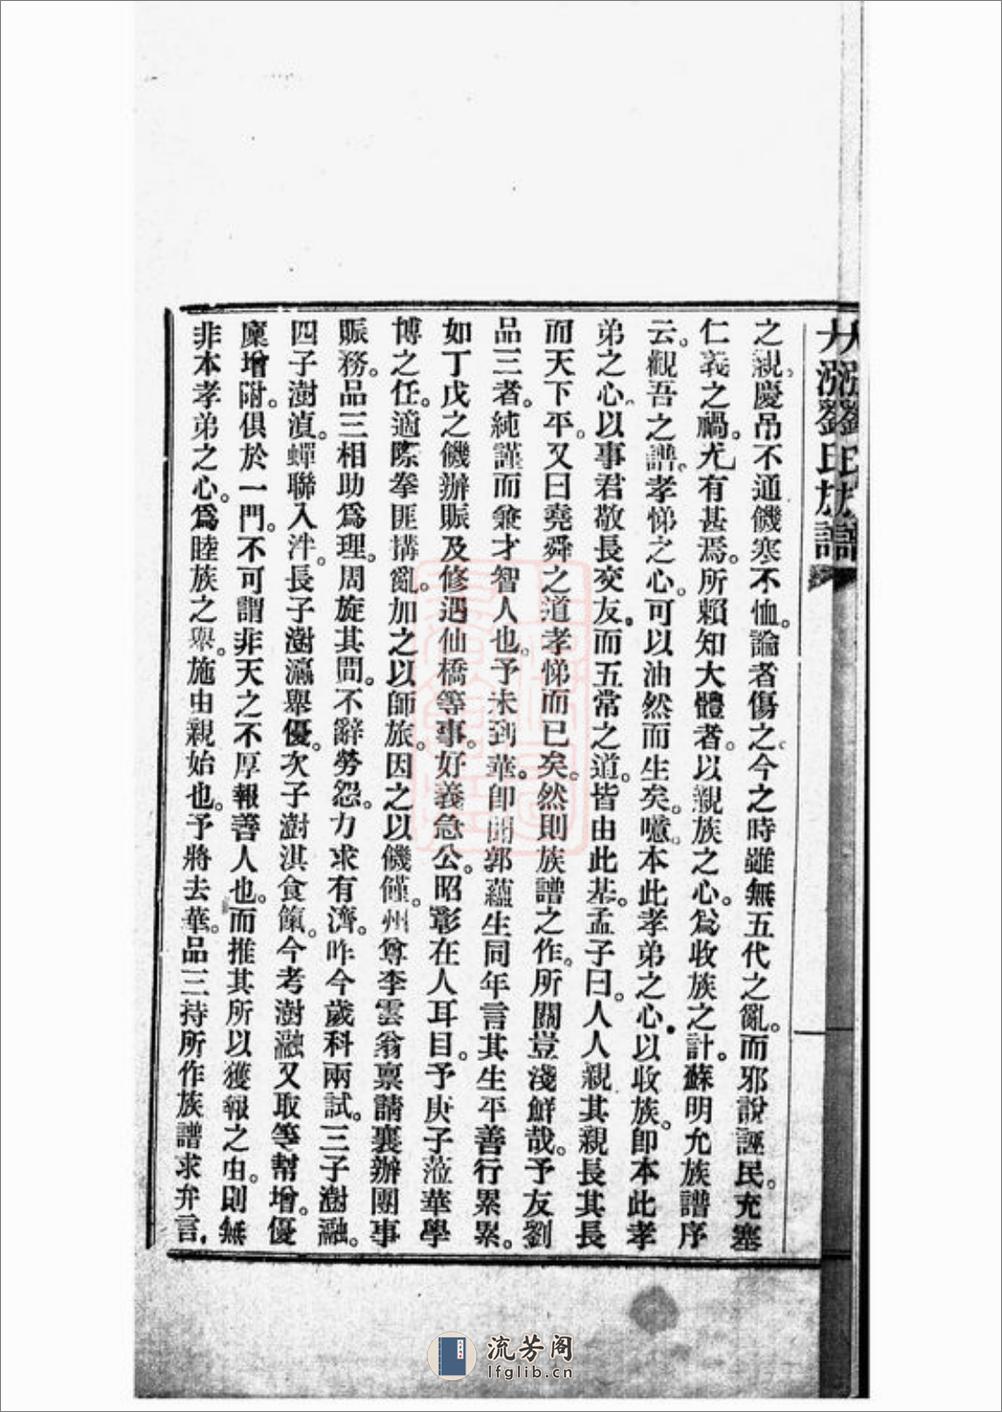 大漲劉氏族譜
之親。慶吊不通。饑寒不恤。論者傷之。今之時雖無五代之亂。而邪說誣民。充塞
仁義之禍。尤有甚焉。所賴知大體者。以親族之心。爲收族之計。蘇明允族譜序
云。觀吾之譜。孝悌之心。可以油然而生矣。噫。本此孝弟之心。以收族。卽本此孝
弟之心。以事君敬長交友。而五常之道。皆由此基。孟子曰。人人親其親長其長
而天下平。又曰堯舜之道孝悌而已矣。然則族譜之作。所關豈淺鮮哉。予友劉
品三者。純謹而兼才智人也。予未到華。卽聞郭蘊生同年言其生平善行累累。
如丁戊之饑辦賑及修遇仙橋等事。好義急公。昭彰在人耳目。予庚子蒞華學
博之任。適際拳匪搆亂。加之以師旅。因之以饑饉。州尊李雲翁稟請襄辦團事
賑務。品三相助爲理。周旋其間。不辭勞怨。力求有濟。昨今歲科兩試。三子澍融。
四子澍滇。蟬聯入泮。長子澍瀛舉優。次子澍淇食餼。今考澍融又取等幫增。優
廩增附。俱於一門。不可謂非天之不厚報善人也。而推其所以獲報之由。則無
非本孝弟之心。爲睦族之舉。施由親始也。予將去華。品三持所作族譜求弁言。
流芳阁
lfglib.cn